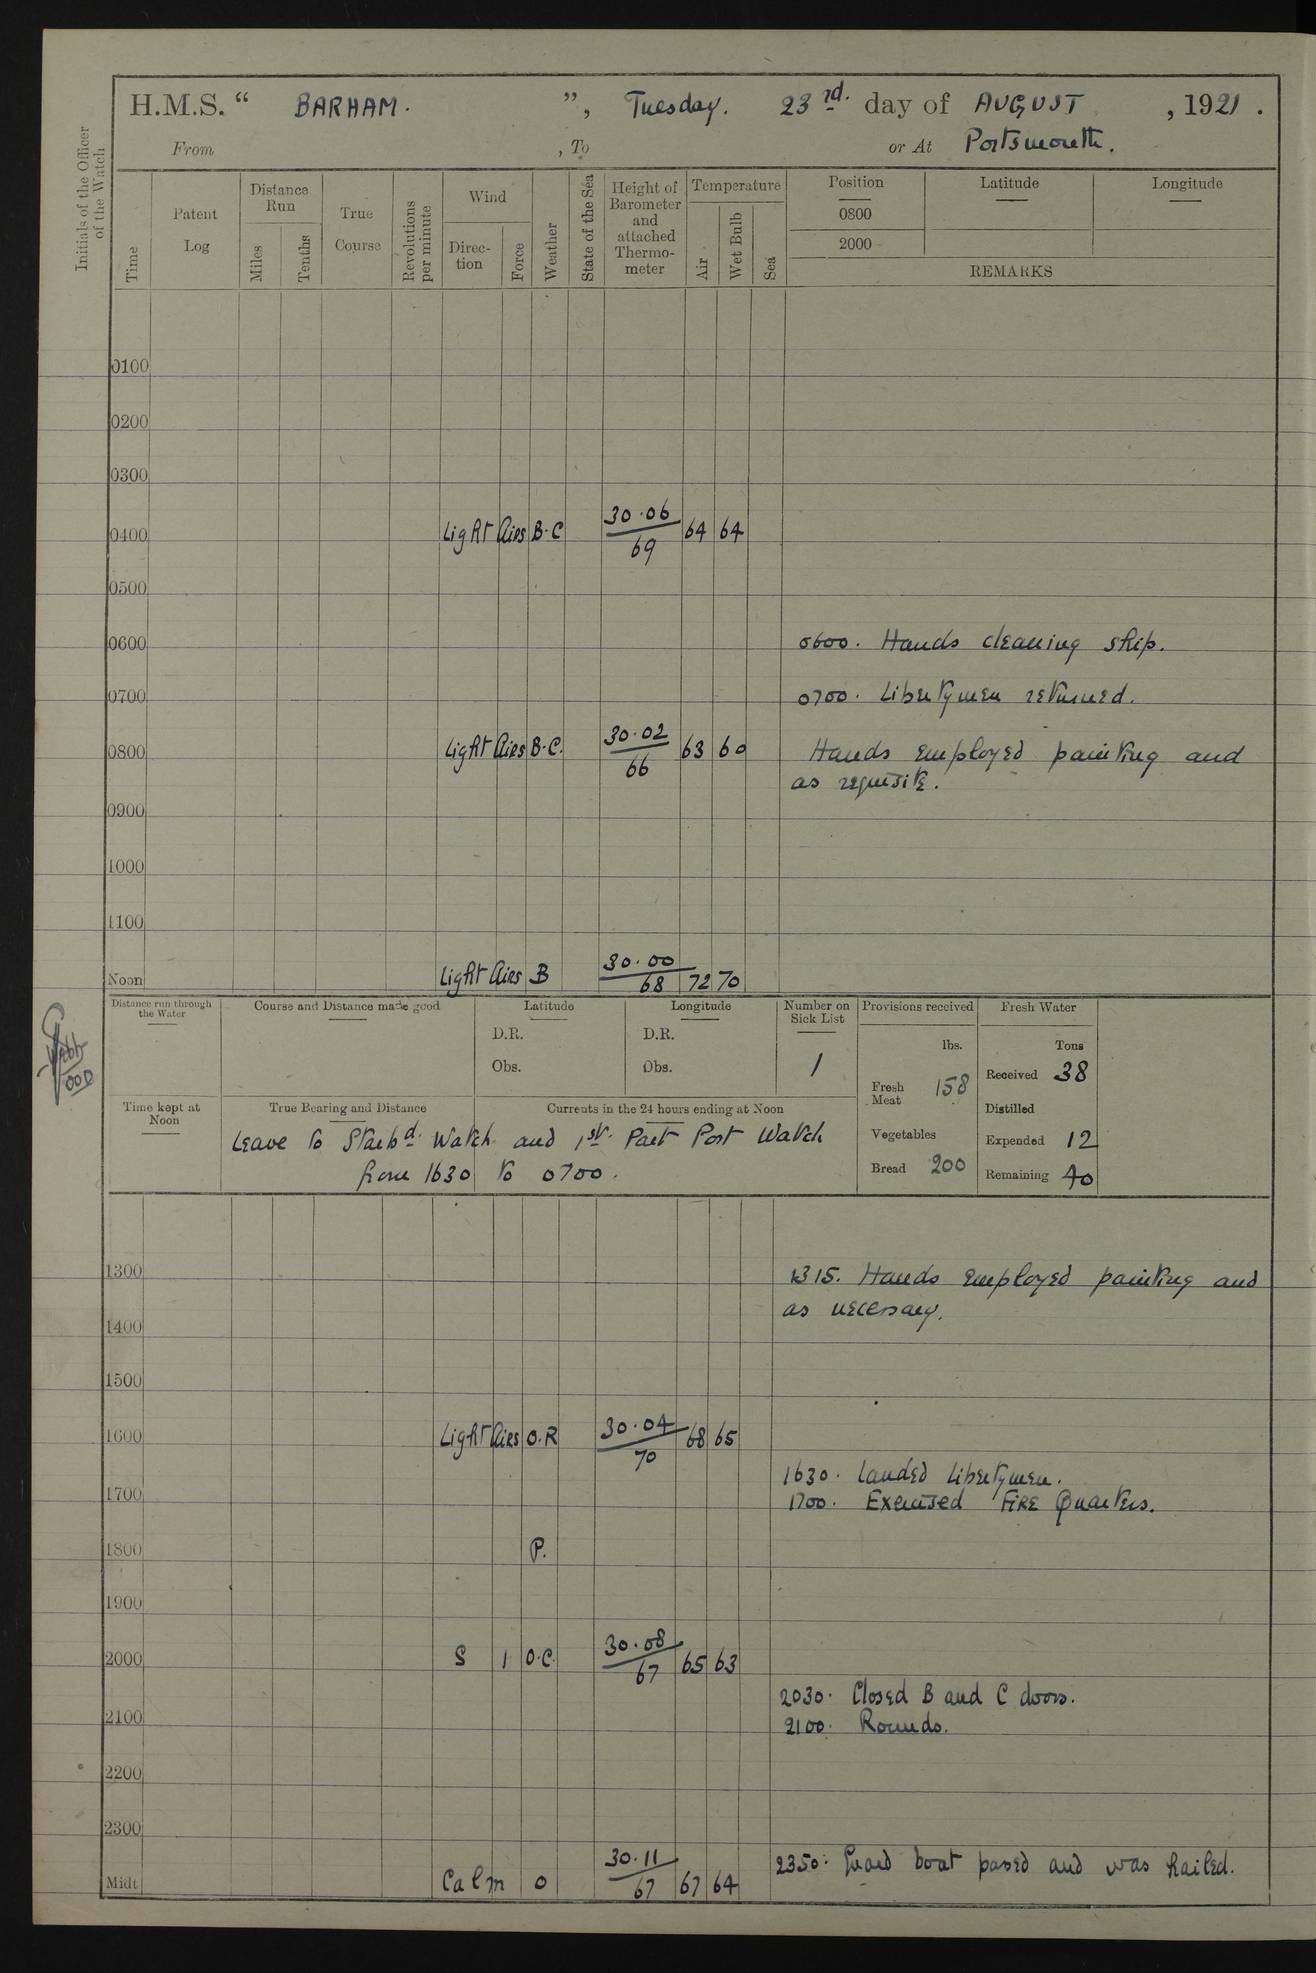 H.M.S. “ BARHAM. ”, Tuesday. 23rd. day of AUGUST , 1921 .
From , To or At Portsmouth.
Initials of the Officer of the Watch
Time
Patent Log
Distance Run
Miles
Tenths
True Course
Revolutions per minute
Wind
Direc-tion
Force
Weather
State of the Sea
Height of Barometer and attached Thermo-meter
Temperature
Air
Wet Bulb
Sea
Position Latitude Longitude
0800
2000
REMARKS
0100
0200
0300
0400 Light Airs B.C 30.06 69 64 64
0500
0600 0600. Hands cleaning ship.
0700 0700. Libertymen returned.
0800 Light Airs B.C. 30.02 66 63 60 Hands employed painting and
as requisite.
0900
1000
1100
Noon Light Airs B 30.00 68 72 70
Distance run through the Water
Course and Distance made good
Latitude
D.R.
Obs.
Longitude
D.R.
Obs.
Number on Sick List
1
Provisions received
lbs.
Fresh Meat 158
Vegetables
Bread 200
Fresh Water
Tons
Received 38
Distilled
Expended 12
Remaining 40
Time kept at Noon
True Bearing and Distance
Currents in the 24 hours ending at Noon
Leave to Starbd. Watch and 1st. Part Port Watch
from 1630 to 0700.
OOD
1300 1315. Hands employed painting and
as necessary.
1400
1500
1600 Light Airs O.R 30.04 70 68 65
1630. Landed Libertymen.
1700 1700. Exercised FIRE Quarters.
1800 P.
1900
2000 S 1 O.C. 30.08 67 65 63
2030. Closed B and C doors.
2100 2100. Rounds.
2200
2300
2350. Guard boat passed and was hailed.
Midt. Calm O 30.11 67 67 64